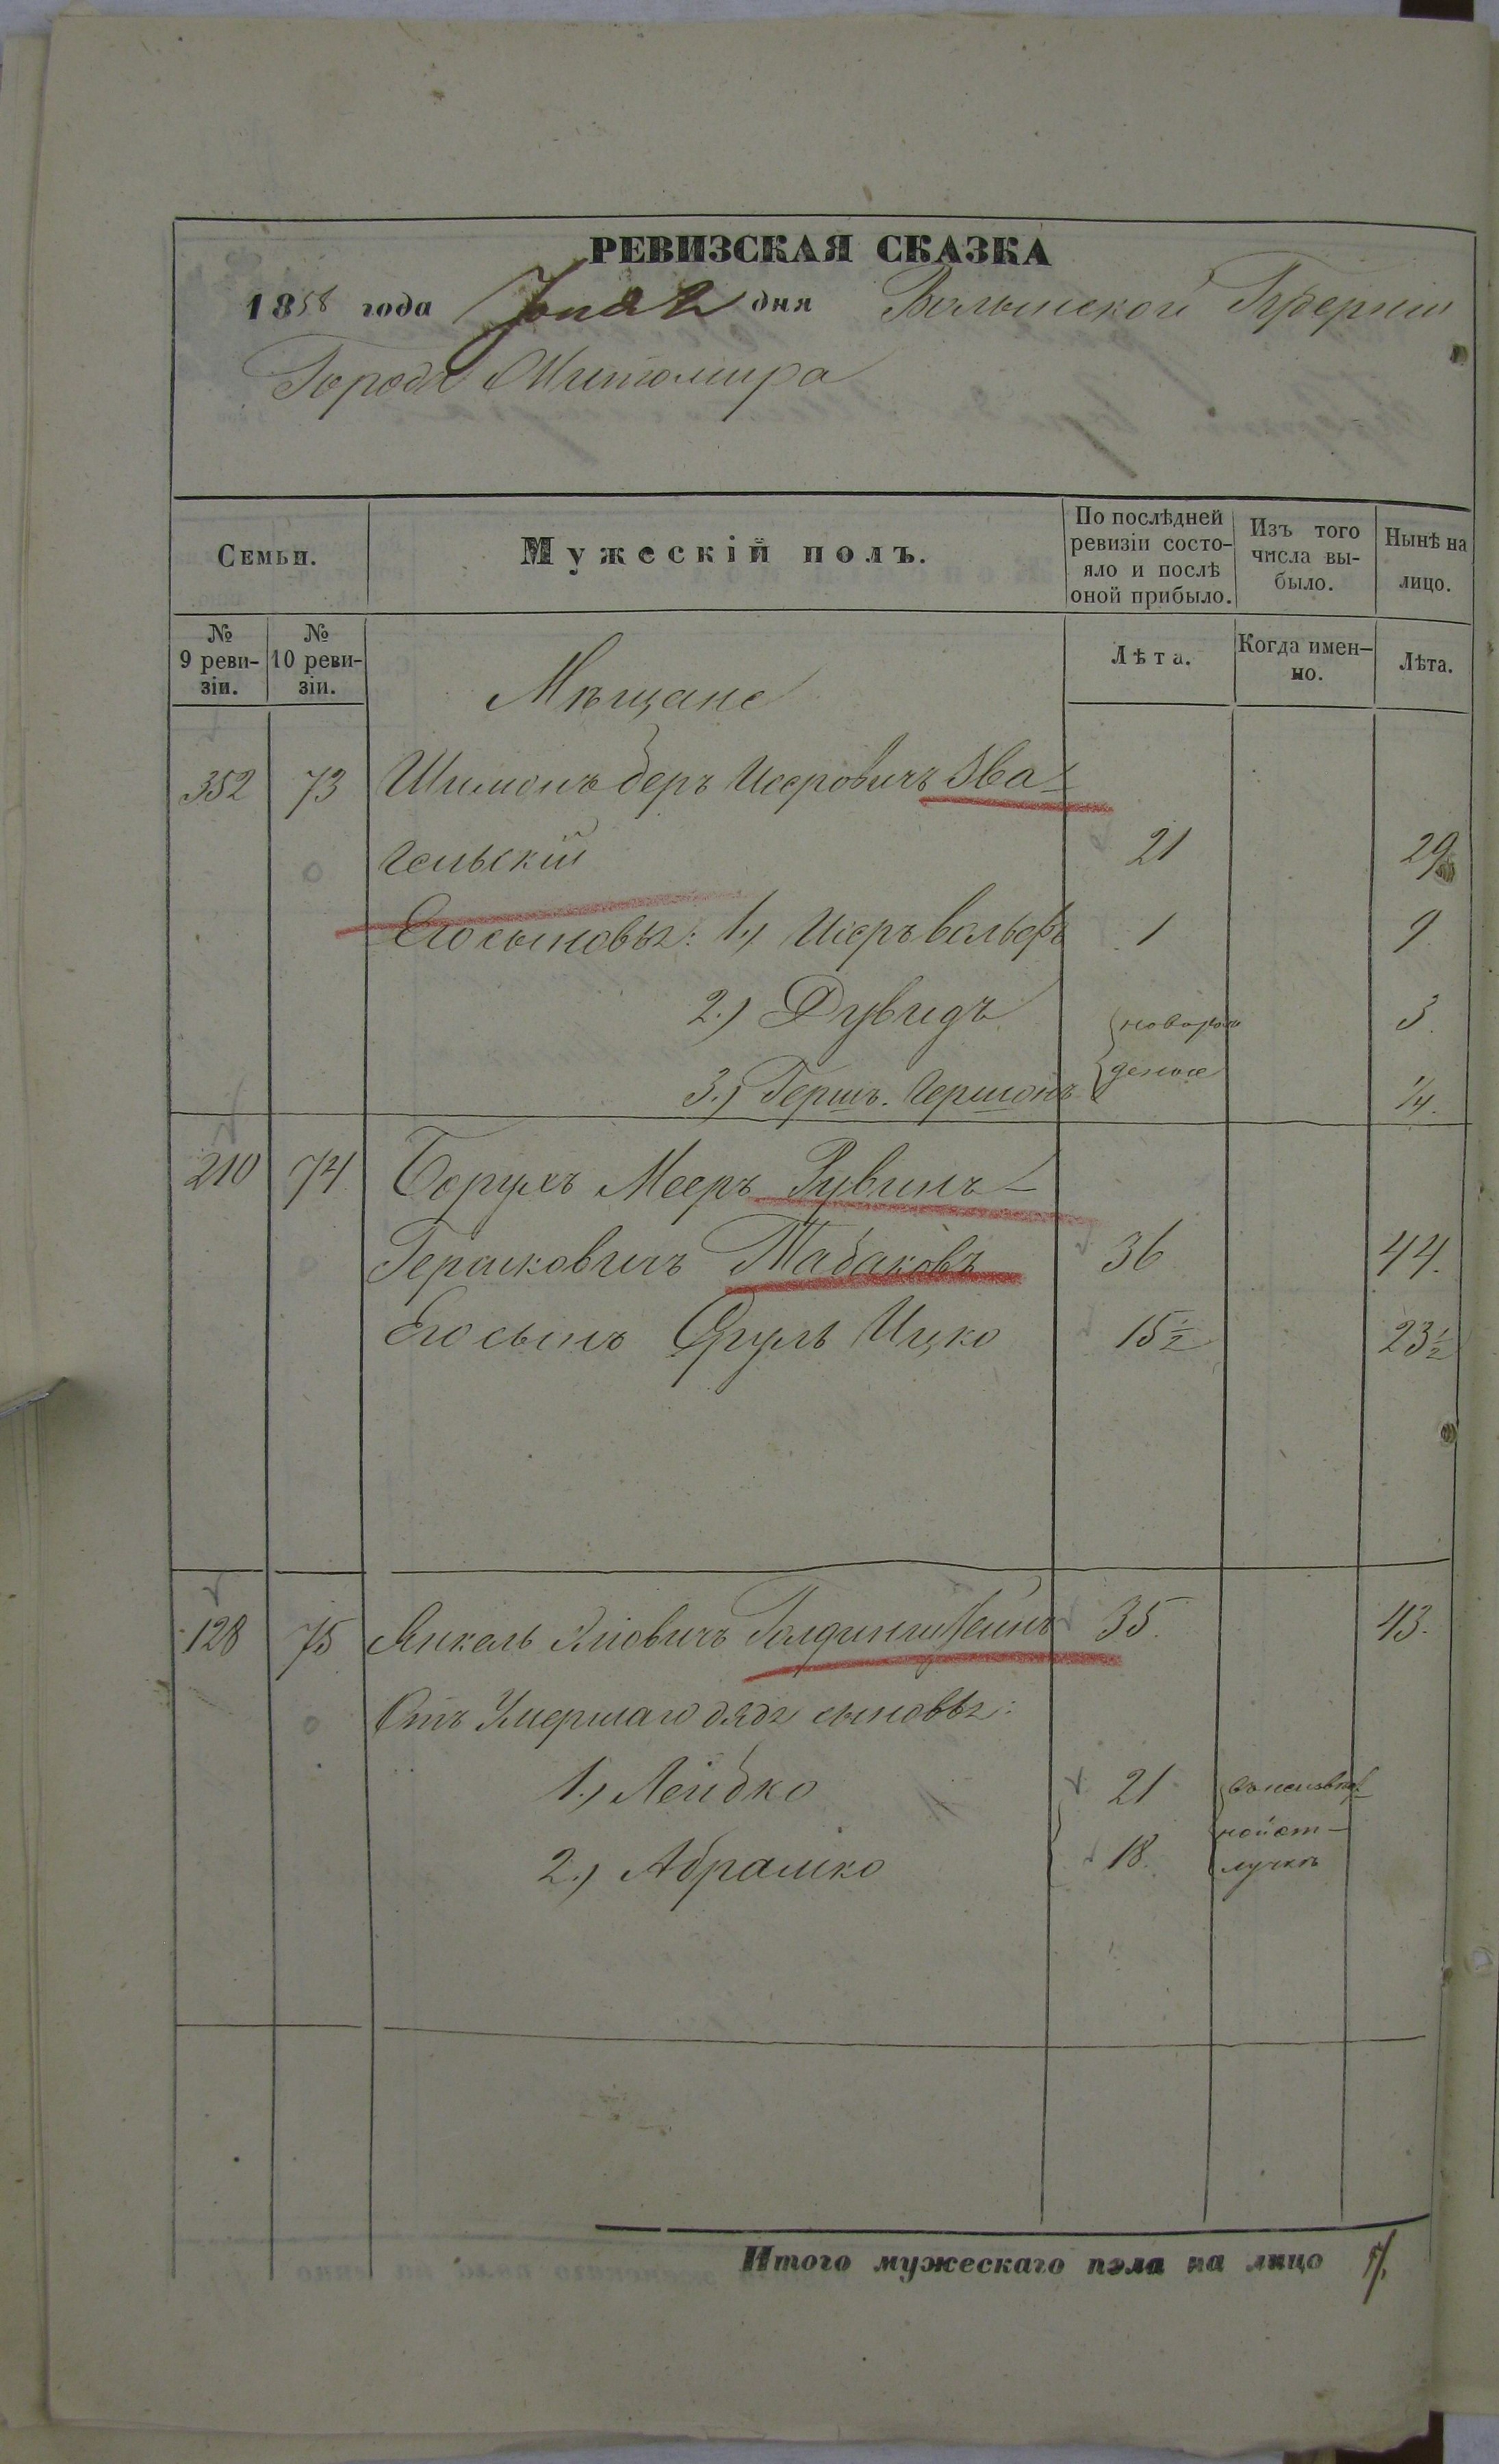 РЕВИЗСКАЯ СКАЗКА
1858 года Іюня 2 дня Волынской Губерніи
Города Житомира
Семьи.
Мужескій полъ.
По послѣдней ревизіи состо-
яло и послѣ оной прибыло.
Изъ того числа вы-
было.
Нынѣ на лицо.
№ 9 реви-
зіи.
№ 10 реви-
зіи.
Лѣта.
Когда имен-
но.
Лѣта.
Мѣщане
352 73 Шимонъ беръ Исеровичъ Зва-
гельскій 21 29
Его сыновья: 1.) Исеръ вольфъ 1 9
2.) Дувидъ новорож 3
3.) Гершъ Гершонъ денные 1/4.
210 74 Борухъ Мееръ Рувинъ-
Гершковичъ Табаковъ 36 44.
Его сынъ Сруль Ицко 15 1/2 23 1/2
128 75 Янкель Хіовичъ Голдингштейнъ 35. 43.
Отъ Умершаго дяди сыновья:
1.) Лейбко 21 въ неизвѣст-
ной от-
2.) Абрамко 18. лучкѣ
Итого мужескаго пола на лицо 7.